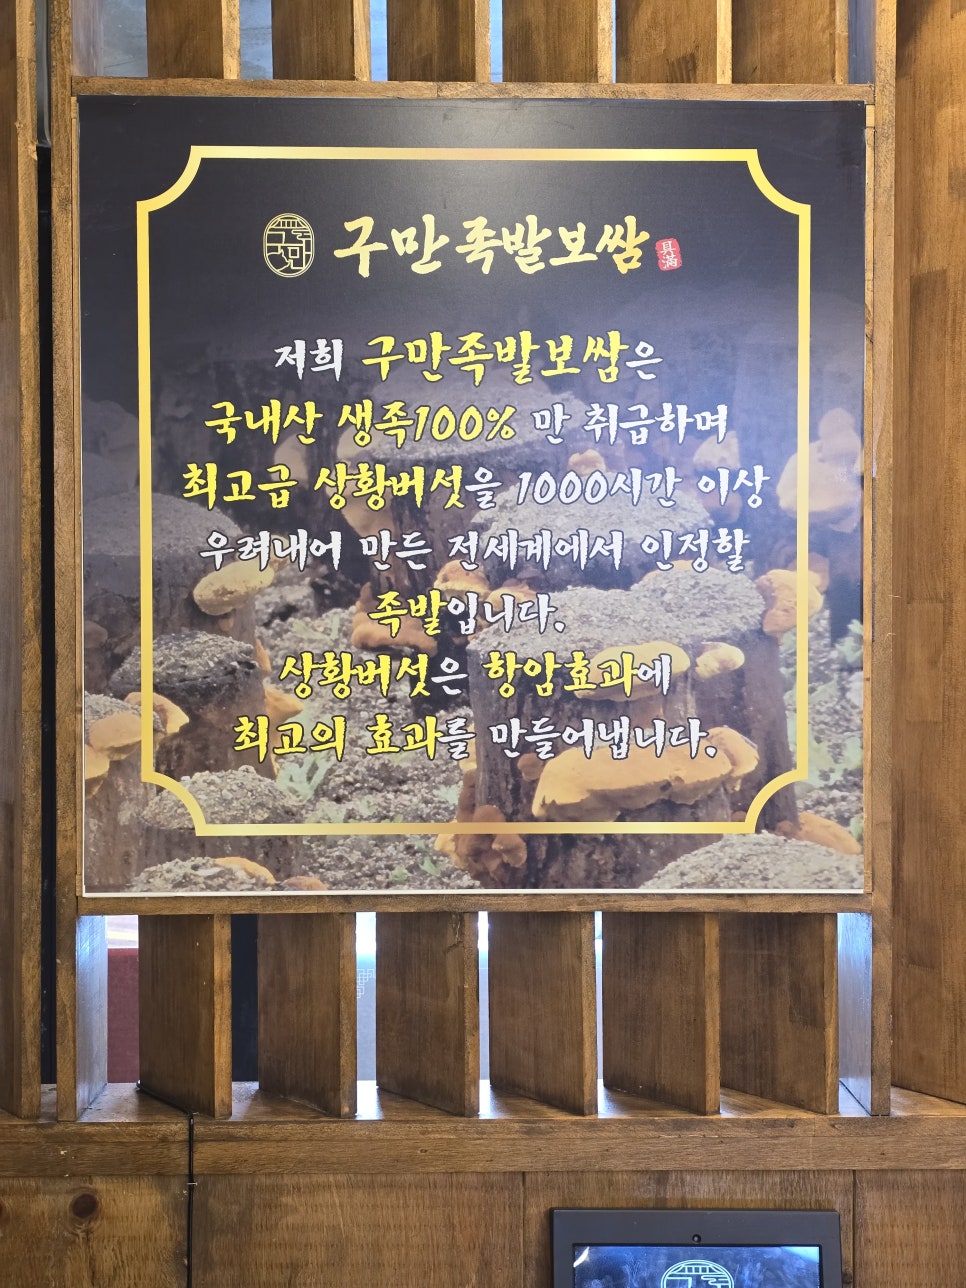 구만 족발보쌈 具滿
저희 구만족발보쌈은
국내산 생족100% 만 취급하며
최고급 상황버섯을 1000시간 이상
우려내어 만든 전세계에서 인정할
족발입니다.
상황버섯은 항암효과에
최고의 효과를 만들어냅니다.